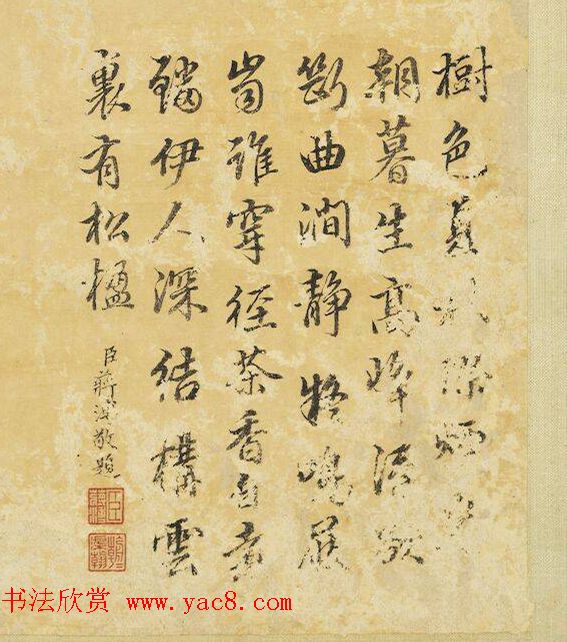 樹色際煙
朝暮生高峰欲
斷曲澗靜猶鳴屐
齒誰穿徑茶香自煮
鐺伊人深結構雲
裏有松楹
臣蔣溥敬題
书法欣赏 www.yac8.com